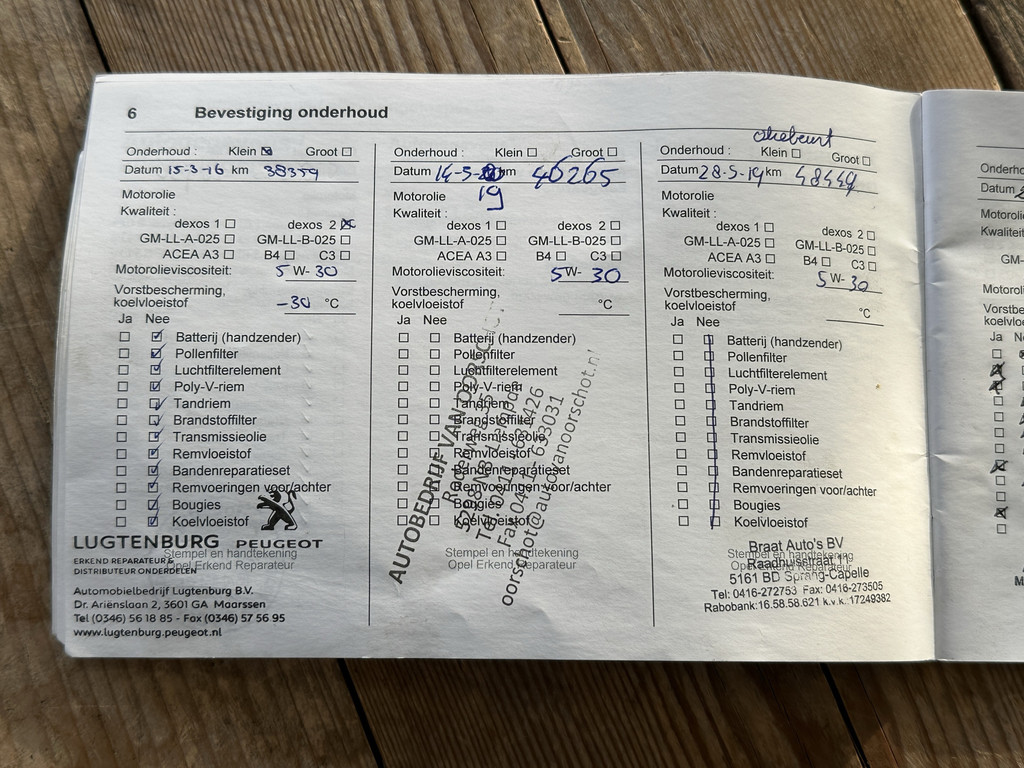 6 Bevestiging onderhoud
Onderhoud : Klein ☒ Groot ☐
Datum 15-3-16 km 38379
Motorolie
Kwaliteit :
dexos 1 ☐ dexos 2 ☒
GM-LL-A-025 ☐ GM-LL-B-025 ☐
ACEA A3 ☐ B4 ☐ C3 ☐
Motorolieviscositeit: 5 W- 30
Vorstbescherming,
koelvloeistof -30 °C
Ja Nee
☐ ☑ Batterij (handzender)
☐ ☑ Pollenfilter
☐ ☑ Luchtfilterelement
☐ ☑ Poly-V-riem
☐ ☑ Tandriem
☐ ☑ Brandstoffilter
☐ ☑ Transmissieolie
☐ ☑ Remvloeistof
☐ ☑ Bandenreparatieset
☐ ☑ Remvoeringen voor/achter
☐ ☑ Bougies
☐ ☑ Koelvloeistof
LUGTENBURG PEUGEOT
ERKEND REPARATEUR &
DISTRIBUTEUR ONDERDELEN
Stempel en handtekening
Opel Erkend Reparateur
Automobielbedrijf Lugtenburg B.V.
Dr. Ariënslaan 2, 3601 GA Maarssen
Tel (0346) 56 18 85 - Fax (0346) 57 56 95
www.lugtenburg.peugeot.nl
Onderhoud : Klein ☐ Groot ☐
Datum 14-5- km 46265
19
Motorolie
Kwaliteit :
dexos 1 ☐ dexos 2 ☐
GM-LL-A-025 ☐ GM-LL-B-025 ☐
ACEA A3 ☐ B4 ☐ C3 ☐
Motorolieviscositeit: 5W- 30
Vorstbescherming,
koelvloeistof °C
Ja Nee
☐ ☐ Batterij (handzender)
☐ ☐ Pollenfilter
☐ ☐ Luchtfilterelement
☐ ☐ Poly-V-riem
☐ ☐ Tandriem
☐ ☐ Brandstoffilter
☐ ☐ Transmissieolie
☐ ☐ Remvloeistof
☐ ☐ Bandenreparatieset
☐ ☐ Remvoeringen voor/achter
☐ ☐ Bougies
☐ ☐ Koelvloeistof
AUTOBEDRIJF VAN OORSCHOT
Stempel en handtekening
Opel Erkend Reparateur
Onderhoud : Klein ☐ Groot ☐
Datum 28-5-19 km 48449
Motorolie
Kwaliteit :
dexos 1 ☐ dexos 2 ☐
GM-LL-A-025 ☐ GM-LL-B-025 ☐
ACEA A3 ☐ B4 ☐ C3 ☐
Motorolieviscositeit: 5 W- 30
Vorstbescherming,
koelvloeistof °C
Ja Nee
☐ ☐ Batterij (handzender)
☐ ☐ Pollenfilter
☐ ☐ Luchtfilterelement
☐ ☐ Poly-V-riem
☐ ☐ Tandriem
☐ ☐ Brandstoffilter
☐ ☐ Transmissieolie
☐ ☐ Remvloeistof
☐ ☐ Bandenreparatieset
☐ ☐ Remvoeringen voor/achter
☐ ☐ Bougies
☐ ☐ Koelvloeistof
Stempel en handtekening
Opel Erkend Reparateur
Braat Auto's BV
Raadhuisstraat 11
5161 BD Sprang-Capelle
Tel: 0416-272753 Fax: 0416-273505
Rabobank:16.58.58.621 k.v.k.:17249382